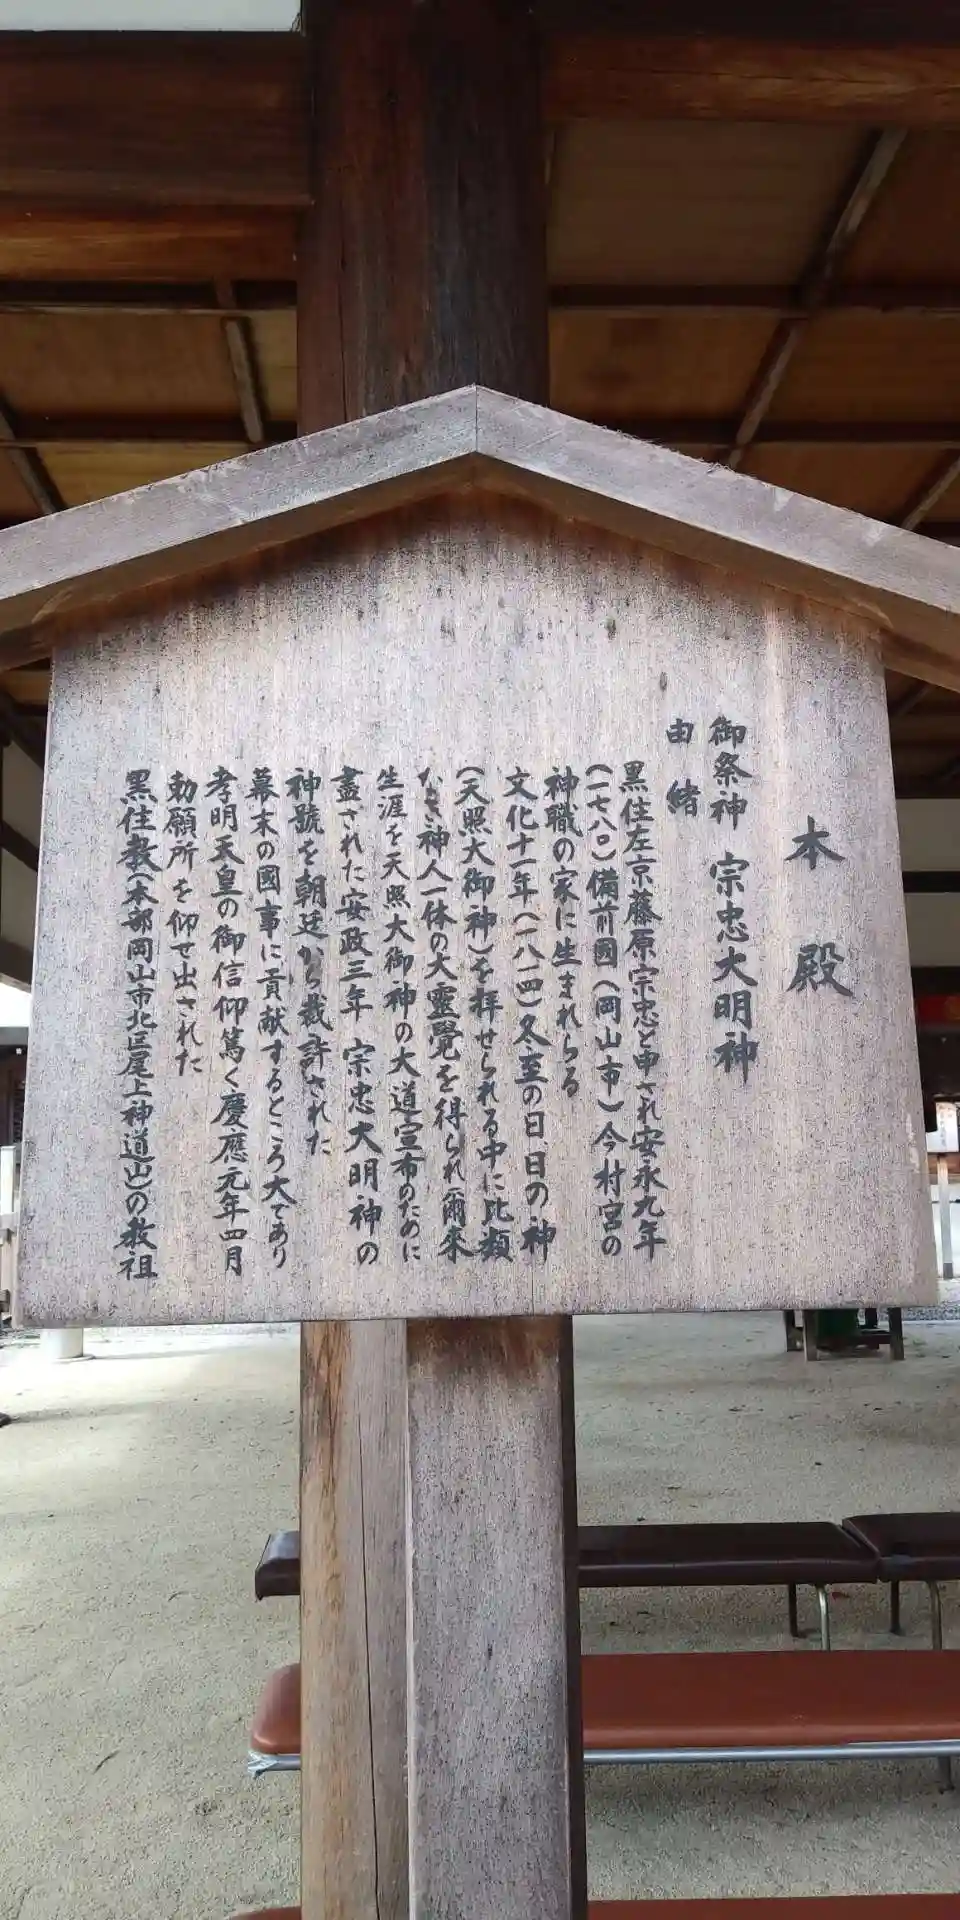 本殿
御祭神 宗忠大明神
由緒
黒住左京藤原宗忠と申され安永九年
(一七八〇)備前國(岡山市)今村宮の
神職の家に生まれらる
文化十一年(一八一四)冬至の日、日の神
(天照大御神)を拝せられる中に比類
なき神人一体の大靈覺を得られ爾来
生涯を天照大御神の大道宣布のために
盡された安政三年 宗忠大明神の
神號を朝廷から裁許された
幕末の國事に貢献するところ大であり
孝明天皇の御信仰篤く慶應元年四月
勅願所を仰せ出された
黒住教(本部岡山市北区尾上神道山)の教祖